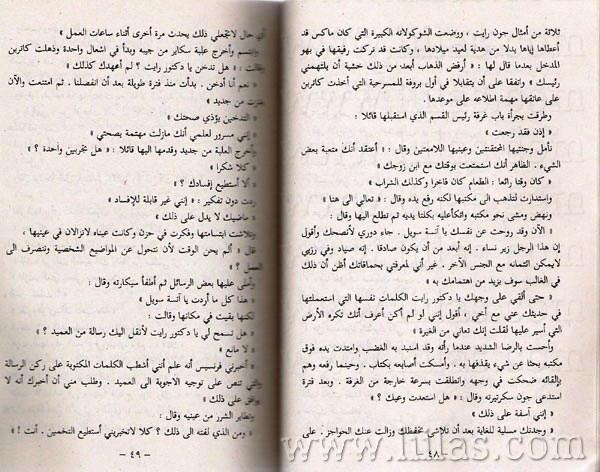 ثلاثة من أمثال جون رايت ، ووضعت الشوكولاته الكبيرة التي كان ماكس قد
أعطاها إياها بدلا من هدية لعيد ميلادها ، وكانت قد تركت رفيقها في بهو
المدخل بعدما قال لها : « أرفض الذهاب أبعد من ذلك خشية أن يلتهمني
رئيسك » واتفقا على أن يتقابلا في أول بروفة للمسرحية التي أخذت كاثرين
على عاتقها مهمة اطلاعه على موعدها .
وطرقت بجرأة باب غرفة رئيس القسم الذي استقبلها قائلا :
« إذن فقد رجعت »
تأمل وجنتيها المحتقنتين وعينيها اللامعتين وقال : « أعتقد أنك متعبة بعض
الشيء . الظاهر أنك استمتعت بوقتك مع ابن زوجك »
« كان وقتا رائعا : الطعام كان فاخرا وكذلك الشراب »
واستدارت لتذهب الى مكتبها لكنه رفع يده وقال : « تعالي الى هنا »
ونهض ومشى نحو مكتبه واتكأ عليه بكلتا يديه ثم تطلع اليها وقال :
« الآن وقد روحت عن نفسك يا آنسة سويل . جاء دوري لأنصحك وأقول
إن هذا الرجل زير نساء . إنه أبعد من أن يكون صادقا . إنه صياد وفي رزيي
لايمكن ائتمانه مع الجنس الآخر . غير أني لمعرفتي بحماقاتك أظن أن ذلك
في الغالب سوف يزيد من اهتمامك به »
« حتى ألقي على وجهك يا دكتور رايت الكلمات نفسها التي استعملتها
في حديثك عني مع أخي ، أقول إنني لو لم أكن أعرف أنك تكره الأرض
التي أسير عليها لقلت إنك تعاني من الغيرة »
وأحست بالرضا الشديد عندما رأته وقد استبد به الغضب وامتدت يده فوق
مكتبه بحثا عن شيء يقذفها به . وأمسكت أصابعه بكتاب . وحينما رفعه وهم
بإلقائه ضحكت في وجهه وانطلقت بسرعة خارجة من الغرفة . وبعد فترة
استدعى جون سكرتيرته وقال : « هل استعدت وعيك ؟ »
« إنني آسفة على ذلك »
« وجدتك مسلية للغاية بعد أن تلاشى تحفظك وزالت عنك الحواجز . على
– ٤٨ –
أية حال لاتجعلي ذلك يحدث مرة أخرى أثناء ساعات العمل »
وابتسم وأخرج علبة سكاير من جيبه وبدأ في اشعال واحدة وذهلت كاثرين
وقالت : « هل تدخن يا دكتور رايت ؟ لم أعهدك كذلك »
« نعم أنا أدخن . بدأت منذ فترة طويلة بعد أن انفصلنا . ثم امتنعت والآن
من جديد »
« التدخين يؤذي صحتك »
« إنني مسرور لعلمي أنك مازلت مهتمة بصحتي »
وأخرج العلبة من جديد وقدمها اليها قائلا : « هل تجربين واحدة ؟ »
« كلا شكرا »
« ألا أستطيع إفسادك ؟ »
ردت دون تفكير : « إنني غير قابلة للإفساد »
« ماضيك لا يدل على ذلك »
وتلاشت ابتسامتها وفكرت في حزن وكانت عيناه لاتزالان في عينيها ،
قال « ألم يحن الوقت لأن نتحول عن المواضيع الشخصية وننصرف الى
العمل ؟ »
وأملى عليها بعض الرسائل ثم أطفأ سيكارته وقال :
« هذا كل ما أردت يا آنسة سويل »
لكنها بقيت في مكانها وقالت :
« هل تسمح لي يا دكتور رايت لأنقل اليك رسالة من العميد ؟ »
« لا مانع »
« أخبرني فرنسيس أنه علم أنني أشطب الكلمات المكتوبة على ركن الرسالة
والتي تنص على توجيه الاجوبة الى العميد . وطلب مني أن أخبرك أنه لا
يوافق على ذلك »
وتطاير الشرر من عينيه وقال :
« ومن الذي لفته الى ذلك ؟ كلا لاتخبريني أستطيع التخمين . أنت ! »
– ٤٩ –
www.liilas.com